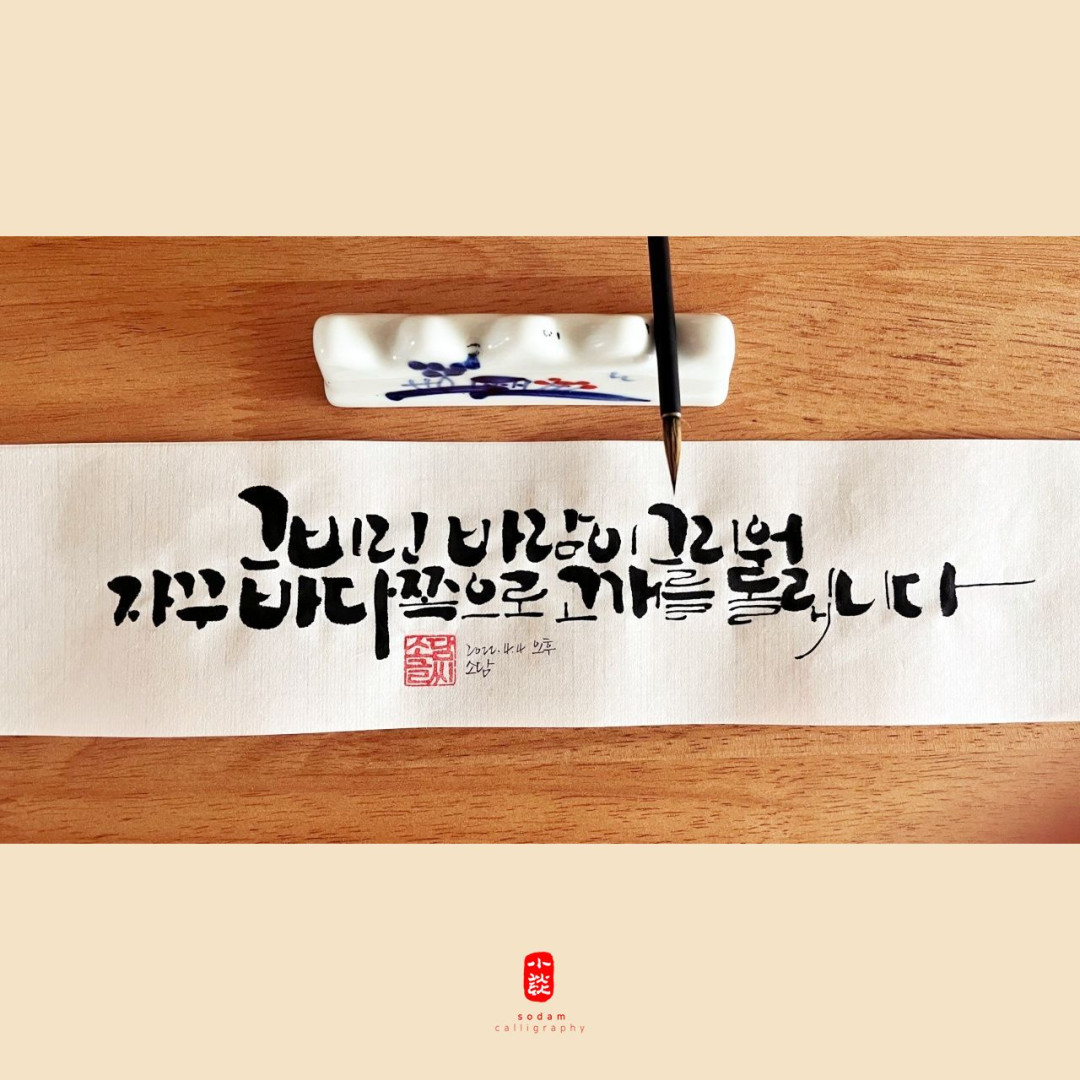 그 비린 바람이 그리워
자꾸 바다쪽으로 고개를 돌립니다
소담
글씨
2022. 4.4 오후
소담
sodam
calligraphy